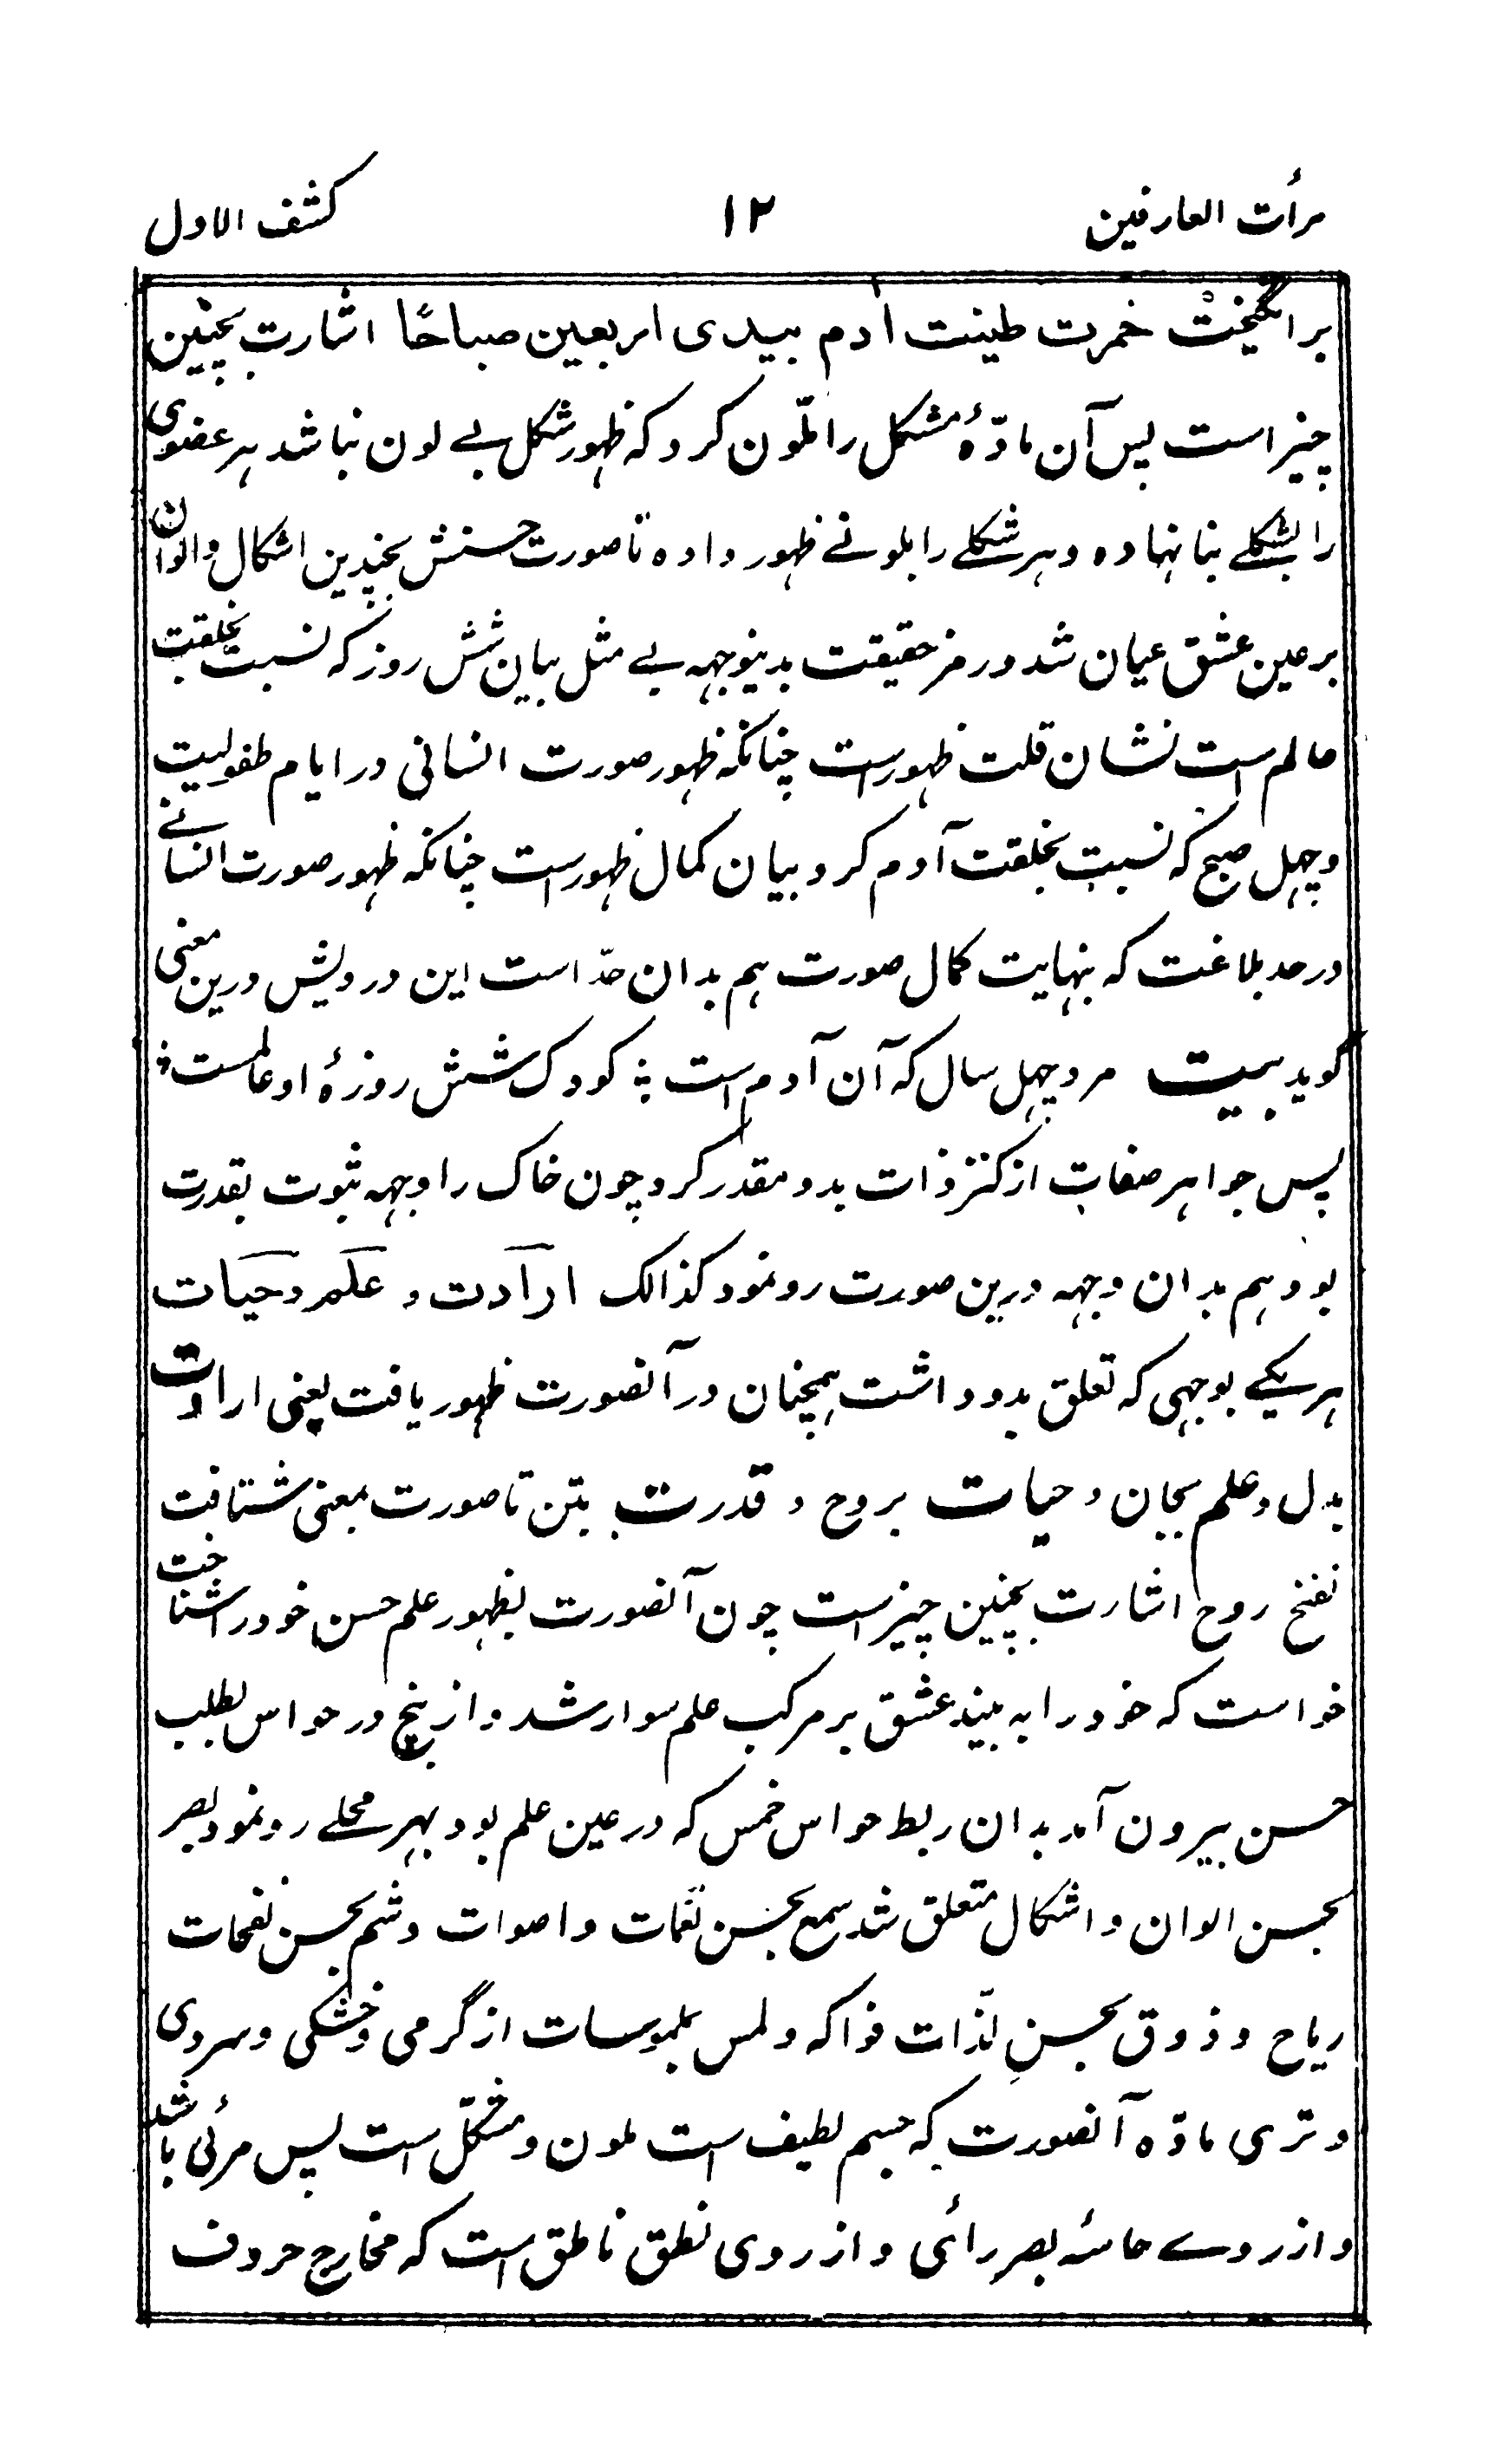 مرأت العارفین ۱۲ کشف الاول
برانگیخت خمرت طینت ادم بیدی اربعین صباحًا اشارت بچنین
چیز است پس آن مادّهٔ مشکل را ملّون کرد که ظهور شکل بے لون نباشد هر عضوی
را بشکلے بنا نهاده و هر شکلے را بلونے ظهور داده تا صورت حسنش بچندین اشکال والوان
بر عین عشق عیان شد و رمز حقیقت بدینوجهه بے مثل بیان شش روز که نسبت بخلقت
عالم است نشان قلت ظهور است چنانکه ظهور صورت انسانی در ایام طفولیت
و چهل صبح که نسبت بخلقت آدم کرد بیان کمال ظهور است چنانکه ظهور صورت انسانے
در حد بلاغت که نهایت کمال صورت هم بدان حدّ است این درویش درین معنی
گوید بیت مرد چهل سال که آن آدم است ؛ کودک شش روزهٔ او عالمست ؛
پس جواهر صفات از کنز ذات بدو مقدر کرد چون خاک را وجهه ثبوت بقدرت
بود هم بدان وجهه درین صورت رو نمود کذالک ارادت و علم و حیات
هر یکے بوجهی که تعلق بدو داشت همچنان در آنصورت ظهور یافت یعنی ارادت
بدل و علم بجان و حیات بروح و قدرت بتن تا صورت بمعنی شتافت
نفخ روح اشارت بچنین چیز است چون آنصورت بظهور علم حسن خود را شناخت
خواست که خود را به بیند عشق بر مرکب علم سوار شد و از پنج در حواس بطلب
حسن بیرون آمد بدان ربط حواس خمس که در عین علم بود بهر محلے رو نمود بصر
بحسن الوان و اشکال متعلق شد سمع بحسن نغمات و اصوات و شم بحسن نفحات
ریاح و ذوق بحسنِ لذّات فواکه و لمس بملبوسات از گرمی و خشکی و سردی
و تری مادّه آنصورت که جسم لطیف است ملون و متشکّل است پس مرئی باشد
و از روے حاسّه بصر رائی و از روی نطق ناطق است که مخارج حروف